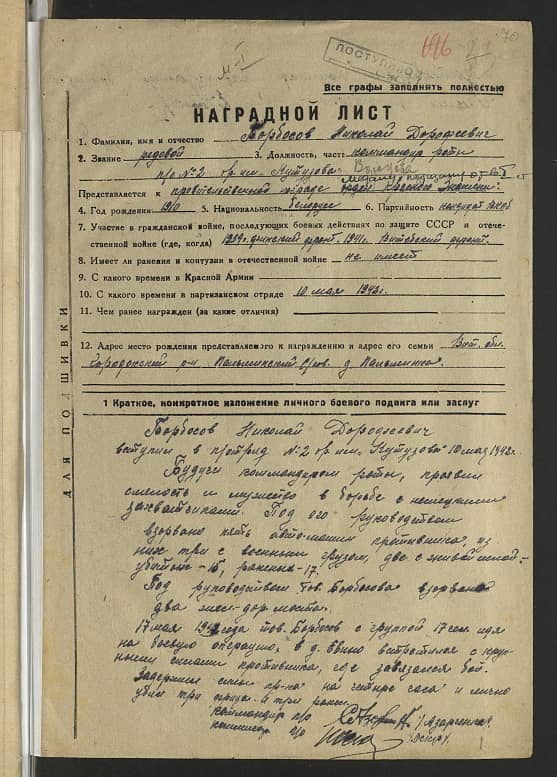 М-I
ПОСТУПИЛО
196
70
Все графы заполнять полностью
НАГРАДНОЙ ЛИСТ
1. Фамилия, имя и отчество Борбосов Николай Дорофеевич
2. Звание рядовой 3. Должность, часть командир роты
п/о №2 бр. им. Кутузова.
Представляется к правительственной награде орден Красного Знамени
4. Год рождения 1910 5. Национальность белорус 6. Партийность кандидат
7. Участие в гражданской войне, последующих боевых действиях по защите СССР и отече-
ственной войне (где, когда) 1939г. финский фронт. 1941г. Витебский фронт.
8. Имеет ли ранения и контузии в отечественной войне не имеет
9. С какого времени в Красной Армии
10. С какого времени в партизанском отряде 10 мая 1942г.
11. Чем ранее награжден (за какие отличия)
12. Адрес место рождения представляемого к награждению и адрес его семьи Вит. обл.
Городокский р-н Пальминский с/сов. д. Пальминка.
ДЛЯ ПОДШИВКИ
1 Краткое, конкретное изложение личного боевого подвига или заслуг
Борбосов Николай Дорофеевич
вступил в п/отряд №2 бр. им. Кутузова 10 мая 1942г.
Будучи командиром роты, проявил
смелость и мужество в борьбе с немецкими
захватчиками. Под его руководством
взорвано пять автомашин противника, из
них три с военным грузом, две с живой силой:
убитых-15, раненых-17.
Под руководством тов. Борбосова взорвано
два жел-дор. моста.
17 мая 1942 года тов. Борбосов с группой 17 чел. идя
на боевую операцию, в д. встретился с круп-
ными силами противника, где завязался бой.
Задержал силы пр-ка на четыре часа и лично
убил три фрица и три ранен.
Командир п/о /Азаренков
комиссар п/о